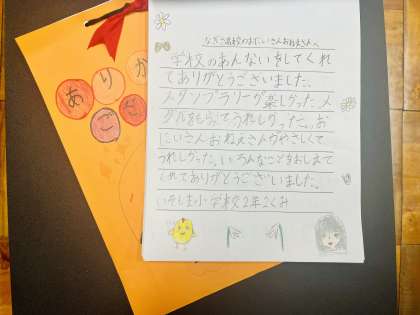 ありが
ござ
なぎさ高校のおにいさんおねえさんへ
学校のあんないをしてくれ
てありがとうございました。
スタンプラリーが楽しかったメ
ダルをもらってうれしかった。お
にいさんおねえさんがやさしくて
うれしかった。いろんなことをおしえて
くれてありがとうございました。
小学校2年2くみ